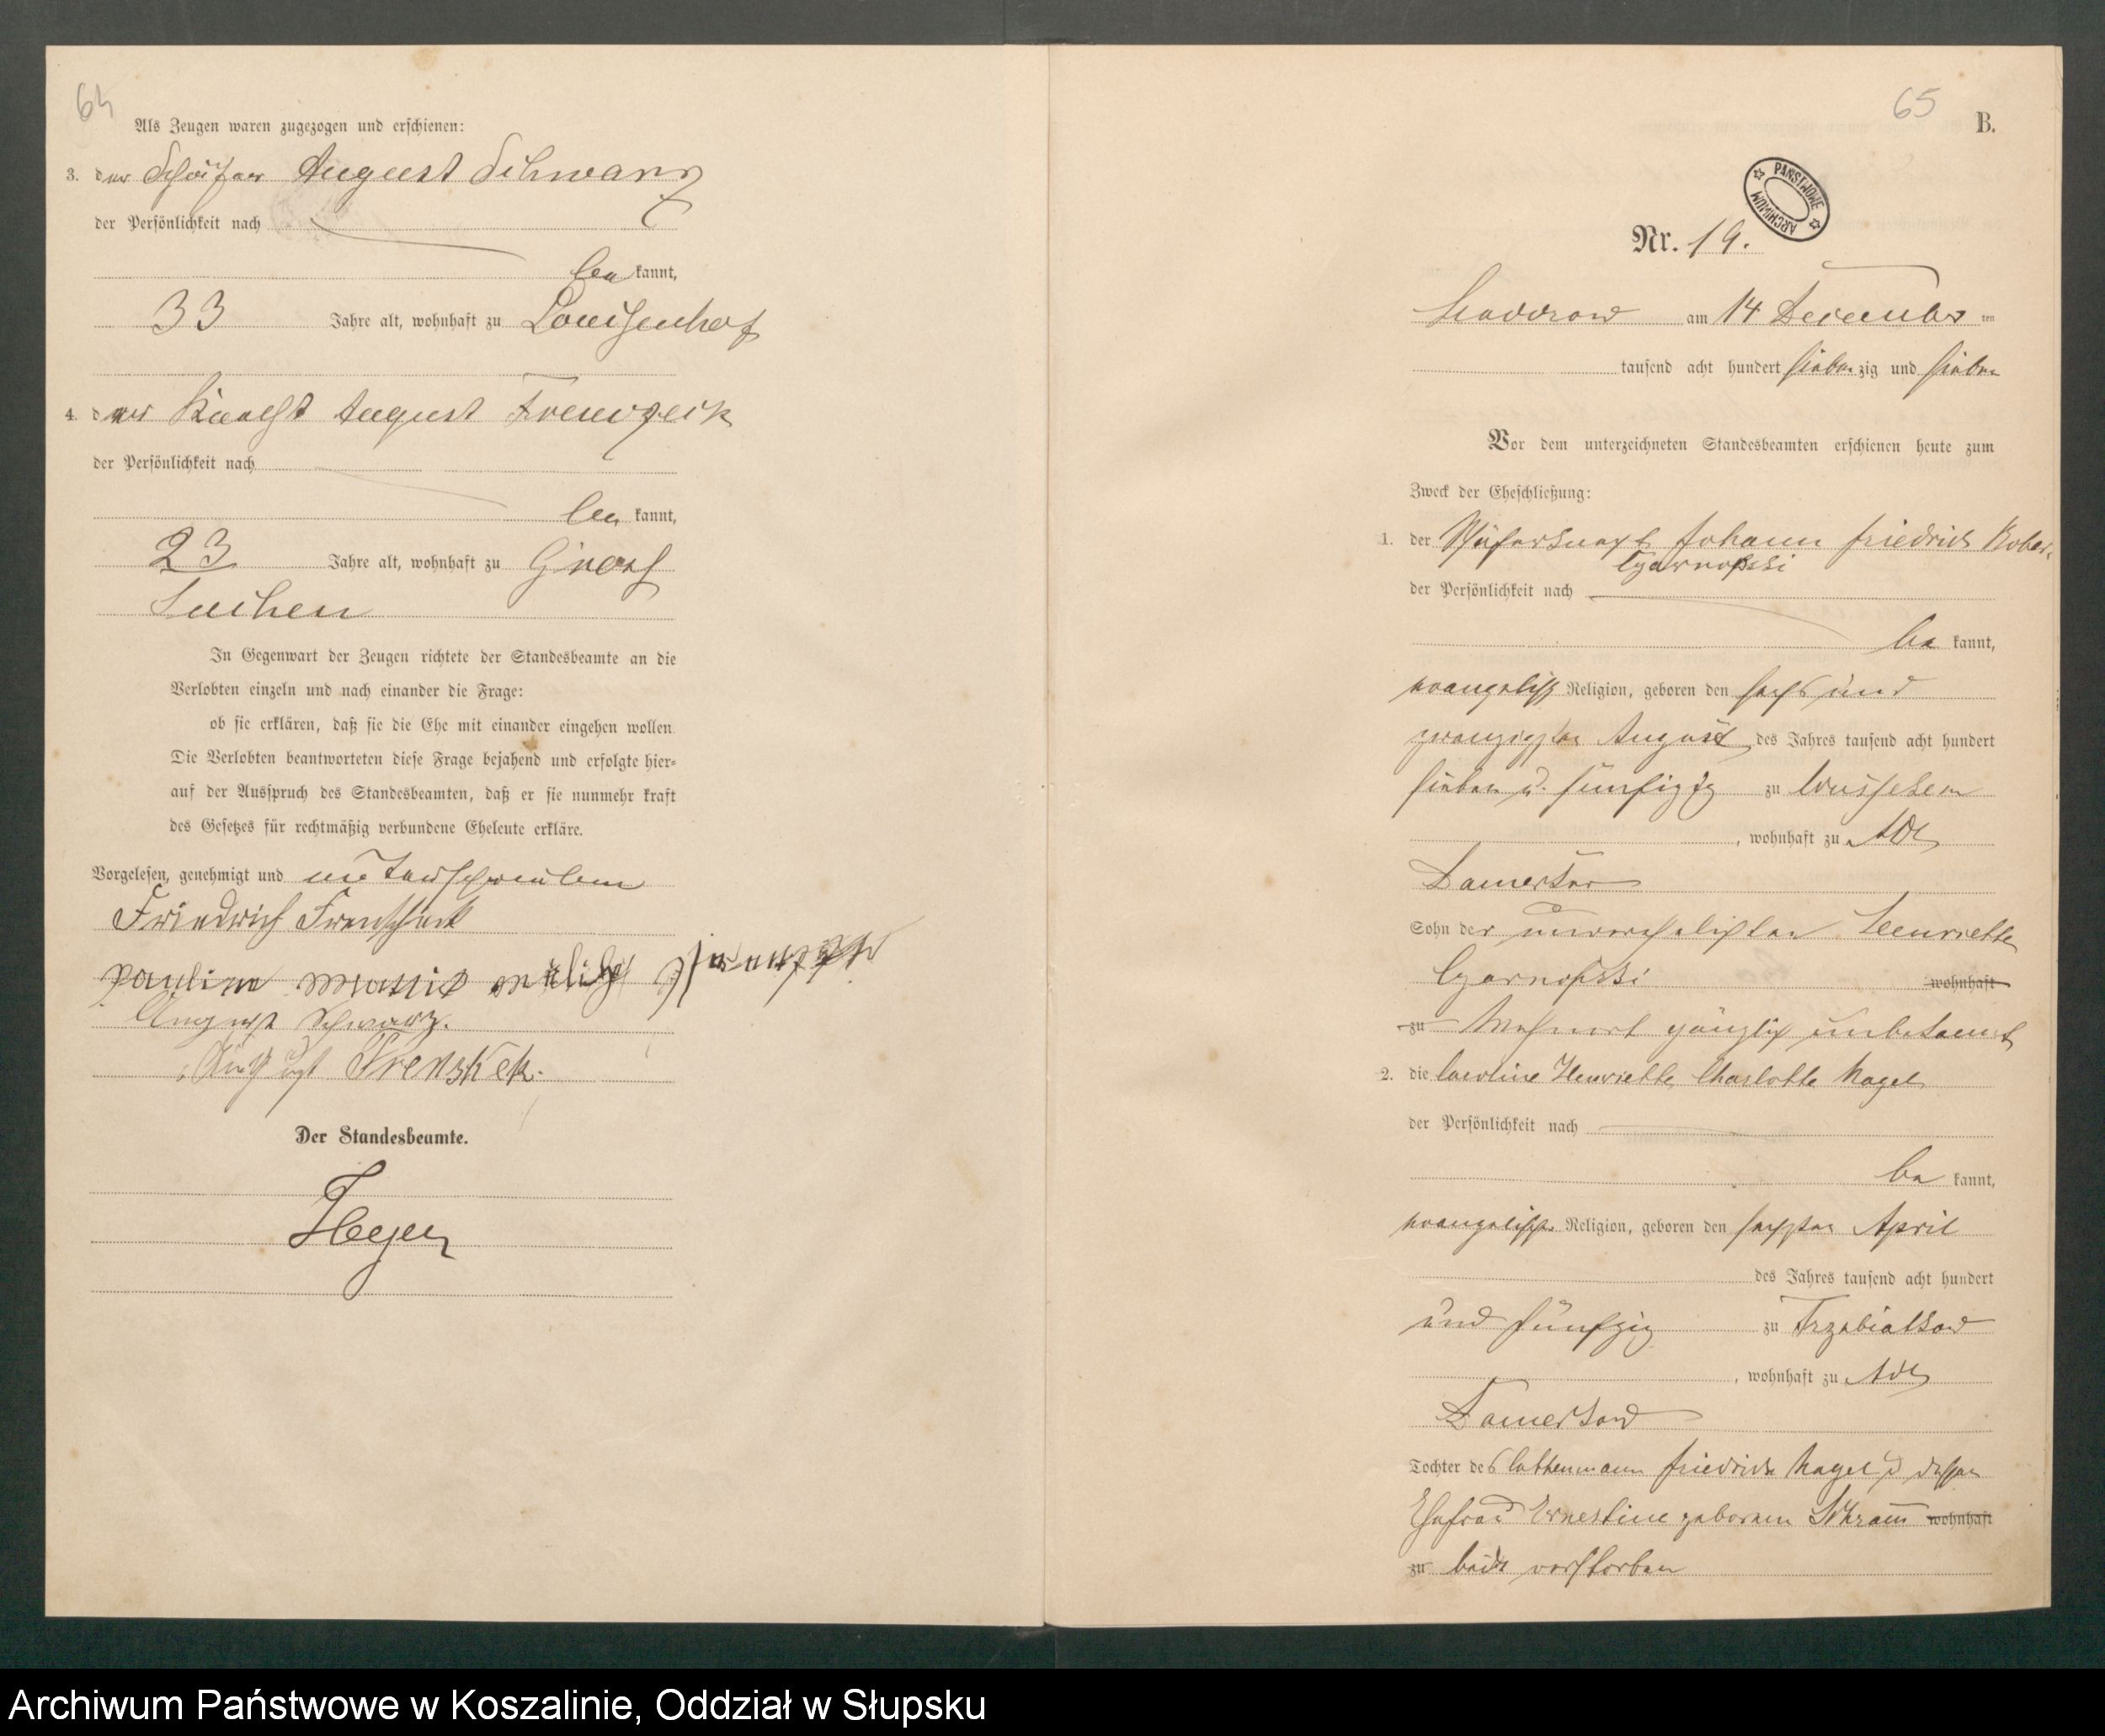 64
Als Zeugen waren zugezogen und erschienen:
3. der August Schwarz
der Persönlichkeit nach
be kannt,
33 Jahre alt, wohnhaft zu Louisenhof
4. der Knecht August
der Persönlichkeit nach
be kannt,
23 Jahre alt, wohnhaft zu
In Gegenwart der Zeugen richtete der Standesbeamte an die
Verlobten einzeln und nach einander die Frage:
ob sie erklären, daß sie die Ehe mit einander eingehen wollen.
Die Verlobten beantworteten diese Frage bejahend und erfolgte hier-
auf der Ausspruch des Standesbeamten, daß er sie nunmehr kraft
des Gesetzes für rechtmäßig verbundene Eheleute erkläre.
Vorgelesen, genehmigt und unterschrieben
Friedrich
August Schwarz.
August Frenskek.
Der Standesbeamte.
65
B.
ARCHIWUM PAŃSTWOWE
Nr. 19.
am 14 December ten
tausend acht hundert sieben zig und sieben
Vor dem unterzeichneten Standesbeamten erschienen heute zum
Zweck der Eheschließung:
1. der Johann Friedrich
Czarnofski
der Persönlichkeit nach
be kannt,
evangelisch Religion, geboren den sechs und
zwanzigsten August des Jahres tausend acht hundert
sieben u. fünfzig zu Wusseken
, wohnhaft zu Adl
Damerkow
Sohn der unverehelichten Henriette
Czarnofski wohnhaft
zu gänzlich unbekannt
2. die Caroline Henriette Charlotte Nagel
der Persönlichkeit nach
be kannt,
evangelische Religion, geboren den sechsten April
des Jahres tausend acht hundert
und fünfzig zu Trzebiatkow
, wohnhaft zu Adl
Damerkow
Tochter des Kathenmann Friedrich Nagel u dessen
Ehefrau Ernestine geborenen Schramm wohnhaft
zu beide verstorben
Archiwum Państwowe w Koszalinie, Oddział w Słupsku